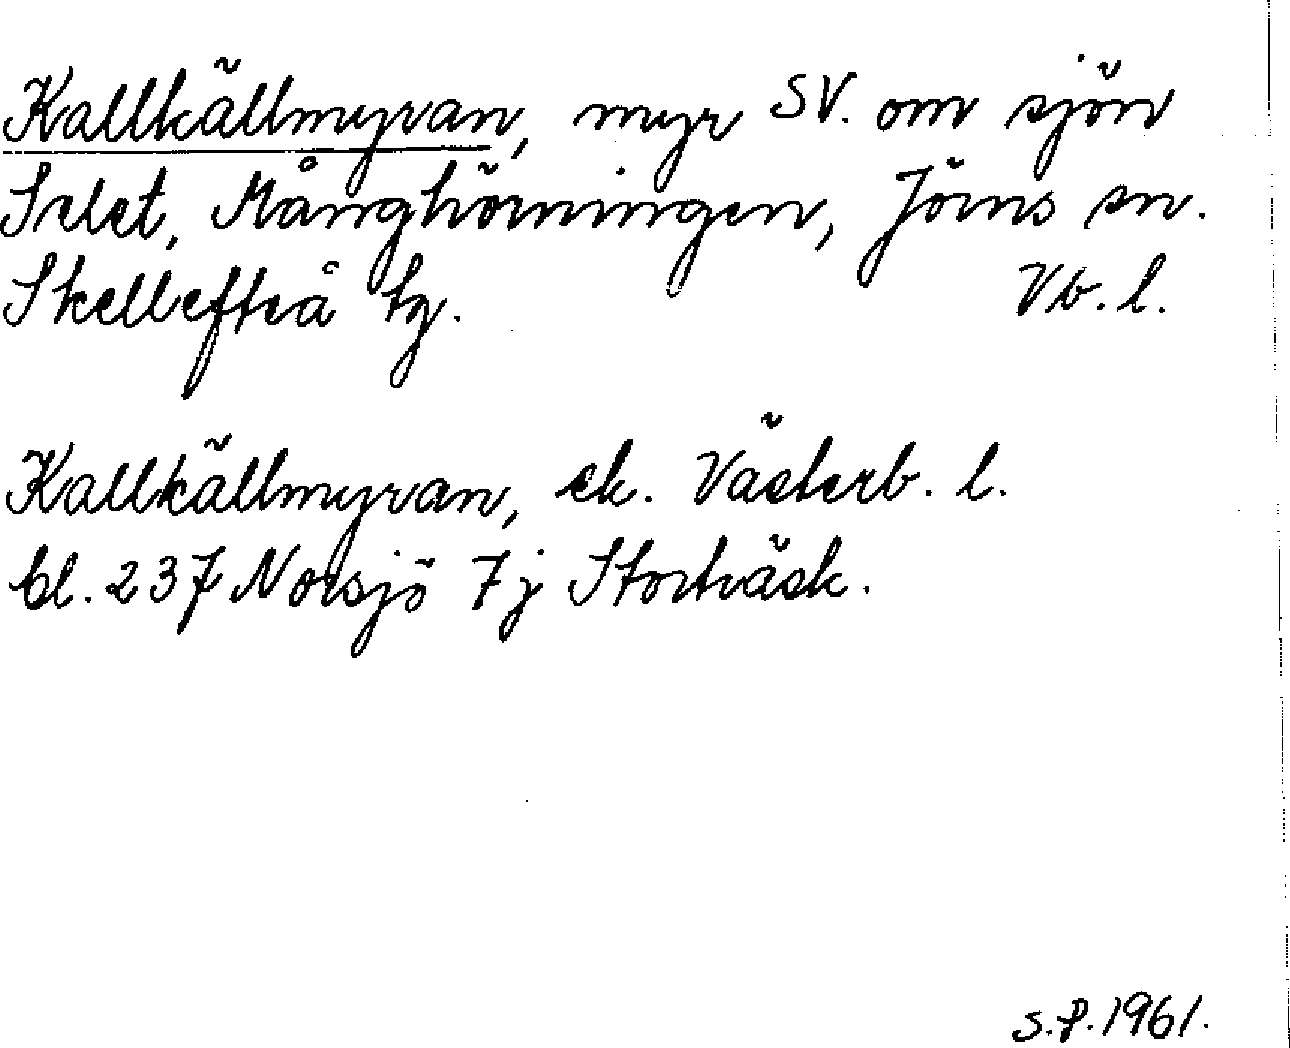 Kallkällmyran, myr SV. om sjön
Selet, Månghörningen, Jörns sn.
Skellefteå tg. Vb. l.
Kallkällmyran, ek. Västerb. l.
bl. 237 Norsjö 7j Storträsk.
S.P. 1961.